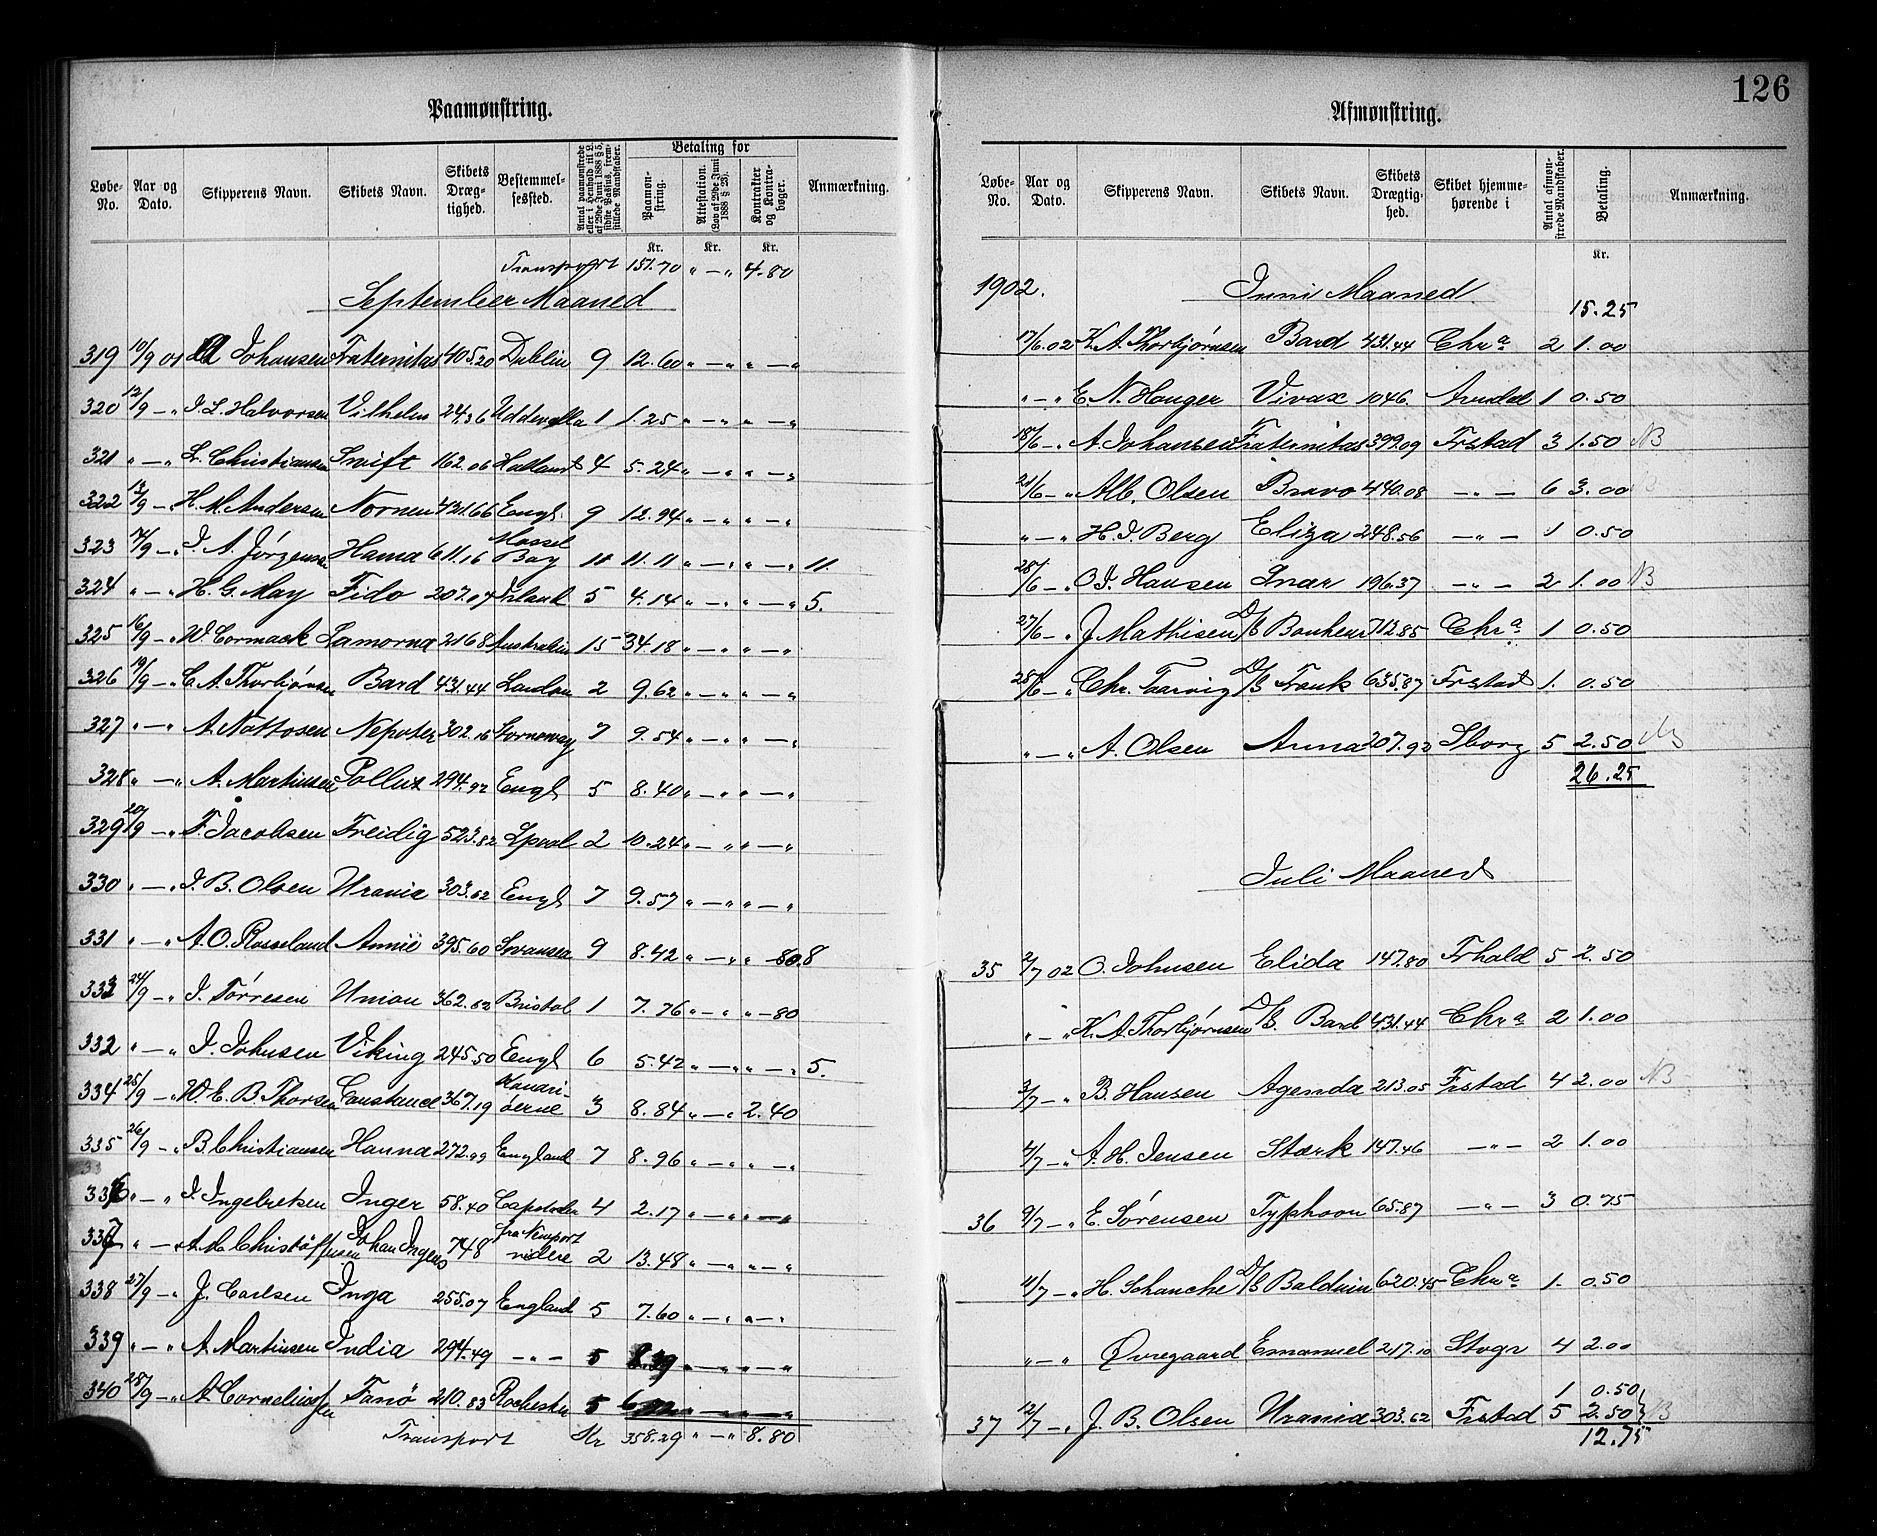 Paamønstring.
Løbe-No. | Aar og Dato. | Skipperens Navn. | Skibets Navn. | Skibets Dræg-tighed. | Bestemmel-sessted. | Antal paamønstrede eller i Henhold til L. af 29de Juni 1888 § 5, sidste Passus, frem-stillede Mandskaber. | Betaling for Paamøn-string. | Attestation. (Lov af 29de Juni 1888 § 23). | Kontrakter og Kontra-bøger. | Anmærkning.
Kr. Kr. Kr.
Transport 151.70 " — " 4.80
September Maaned
319 10/9 01 A Johansen Fraternitas 405.20 Dublin 9 12.60 " — " " — "
320 12/9 — " I. L. Halvorsen Vilhelm 24.36 Uddevalla 1 1.25 " — " " — "
321 " — " L. Christiansen Swift 162.06 Holland 4 5.24 " — " " — "
322 13/9 — " H. M. Andersen Nornen 421.66 Engl 9 12.94 " — " " — "
323 14/9 — " I. A. Jörgensen Hama 611.16 Mossel Bay 11 11.11 " — " " — " 11.
324 " — " H. G. May Fido 207.04 Irland 5 4.14 " — " " — " 5.
325 16/9 — " W. Cormack Lamorna 2168 Australien 15 34.18 " — " " — "
326 19/9 — " C. A. Thorbjörnsen Bard 431.44 London 2 9.62 " — " " — "
327 " — " A. Nottosen Nepoter 302.16 Stornoway 7 9.54 " — " " — "
328 " — " A. Martinsen Pollux 294.92 Engl 5 8.40 " — " " — "
329 20/9 — " F. Jacobsen Freidig 523.82 Lpool 2 10.24 " — " " — "
330 " — " I. B. Olsen Urania 303.62 Engl 7 9.57 " — " " — "
331 " — " A. O. Rosseland Annie 395.60 Swansea 9 8.42 " — " " — 80. 8
333 24/9 — " I. Törresen Union 362.62 Bristol 1 7.76 " — " " — 80
332 " — " I. Johnsen Viking 245.50 Engl 6 5.42 " — " " — " 5.
334 25/9 — " W. E. B. Thorsen Constance 367.19 Kanari-öerne 3 8.84 " — " 2.40
335 26/9 — " B. Christiansen Hanna 272.99 England 7 8.96 " — " " — "
336 " — " I. Ingebretsen Inger 58.40 4 2.17 " — " " — "
337 " — " A. M. Christoffersen Johan Ingers 748 fra Newport videre 2 13.48 " — " " — "
338 27/9 — " J. Carlsen Inga 255.07 England 5 7.60 " — " " — "
339 " — " A. Martinsen India 294.49 — " — 5 8.39 " — " " — "
340 28/9 — " A. Corneliussen Fanö 210.83 Rochester 5 " — " " — "
Transport Kr 358.29 " — " 8.80
126
Afmønstring.
Løbe-No. | Aar og Dato. | Skipperens Navn. | Skibets Navn. | Skibets Drægtig-hed. | Skibet hjemme-hørende i | Antal afmøn-strede Mandskaber. | Betaling. | Anmærkning.
Kr.
1902. Juni Maaned 15.25
17/6. 02 K. A. Thorbjörnsen Bard 431.44 Chr a 2 1.00
" — " E. N. Hauger Vivax 1046. Arendal 1 0.50
18/6 — " A. Johansen Fraternitas 399.09 Frstad 3 1.50 NB
21/6 — " Alb. Olsen Bravo 440.08 — " — 6 3.00 NB
" — " H. I. Berg Eliza 248.56 — " — 1 0.50
25/6 — " O. I. Hansen Snar 196.37 — " — 2 1.00 NB
27/6 — " J. Mathisen D/S Bonheur 712.85 Chr a 1 0.50
28/6 — " Chr. Taarvig D/S Frank 635.87 Frstad 1. 0.50
" — " A. Olsen Anna 207.92 Sborg 5 2.50 NB
26.25
Juli Maaned
35 2/7 02 O. Johnsen Elida 147.80 Frhald 5 2.50
" — " K. A. Thorbjörnsen D/S. Bard 431.44 Chr a 2 1.00
3/7 — " B. Hansen Agenda 213.05 Frstad 4 2.00 NB
4/7 — " A. H. Jensen Stærk 147.46 — " — 2 1.00
36 9/7 — " E. Sörensen Typhoon 65.87 — " — 3 0.75
11/7 — " H. Schanche D/S Baldwin 620.45 Chr a 1. 0.50
" — " Øvregaard Emanuel 217.10 Stvgr 4 2.00
1 0.50
37 12/7 — " J. B. Olsen Urania 303.62 Frstad 5 2.50 NB
12.75